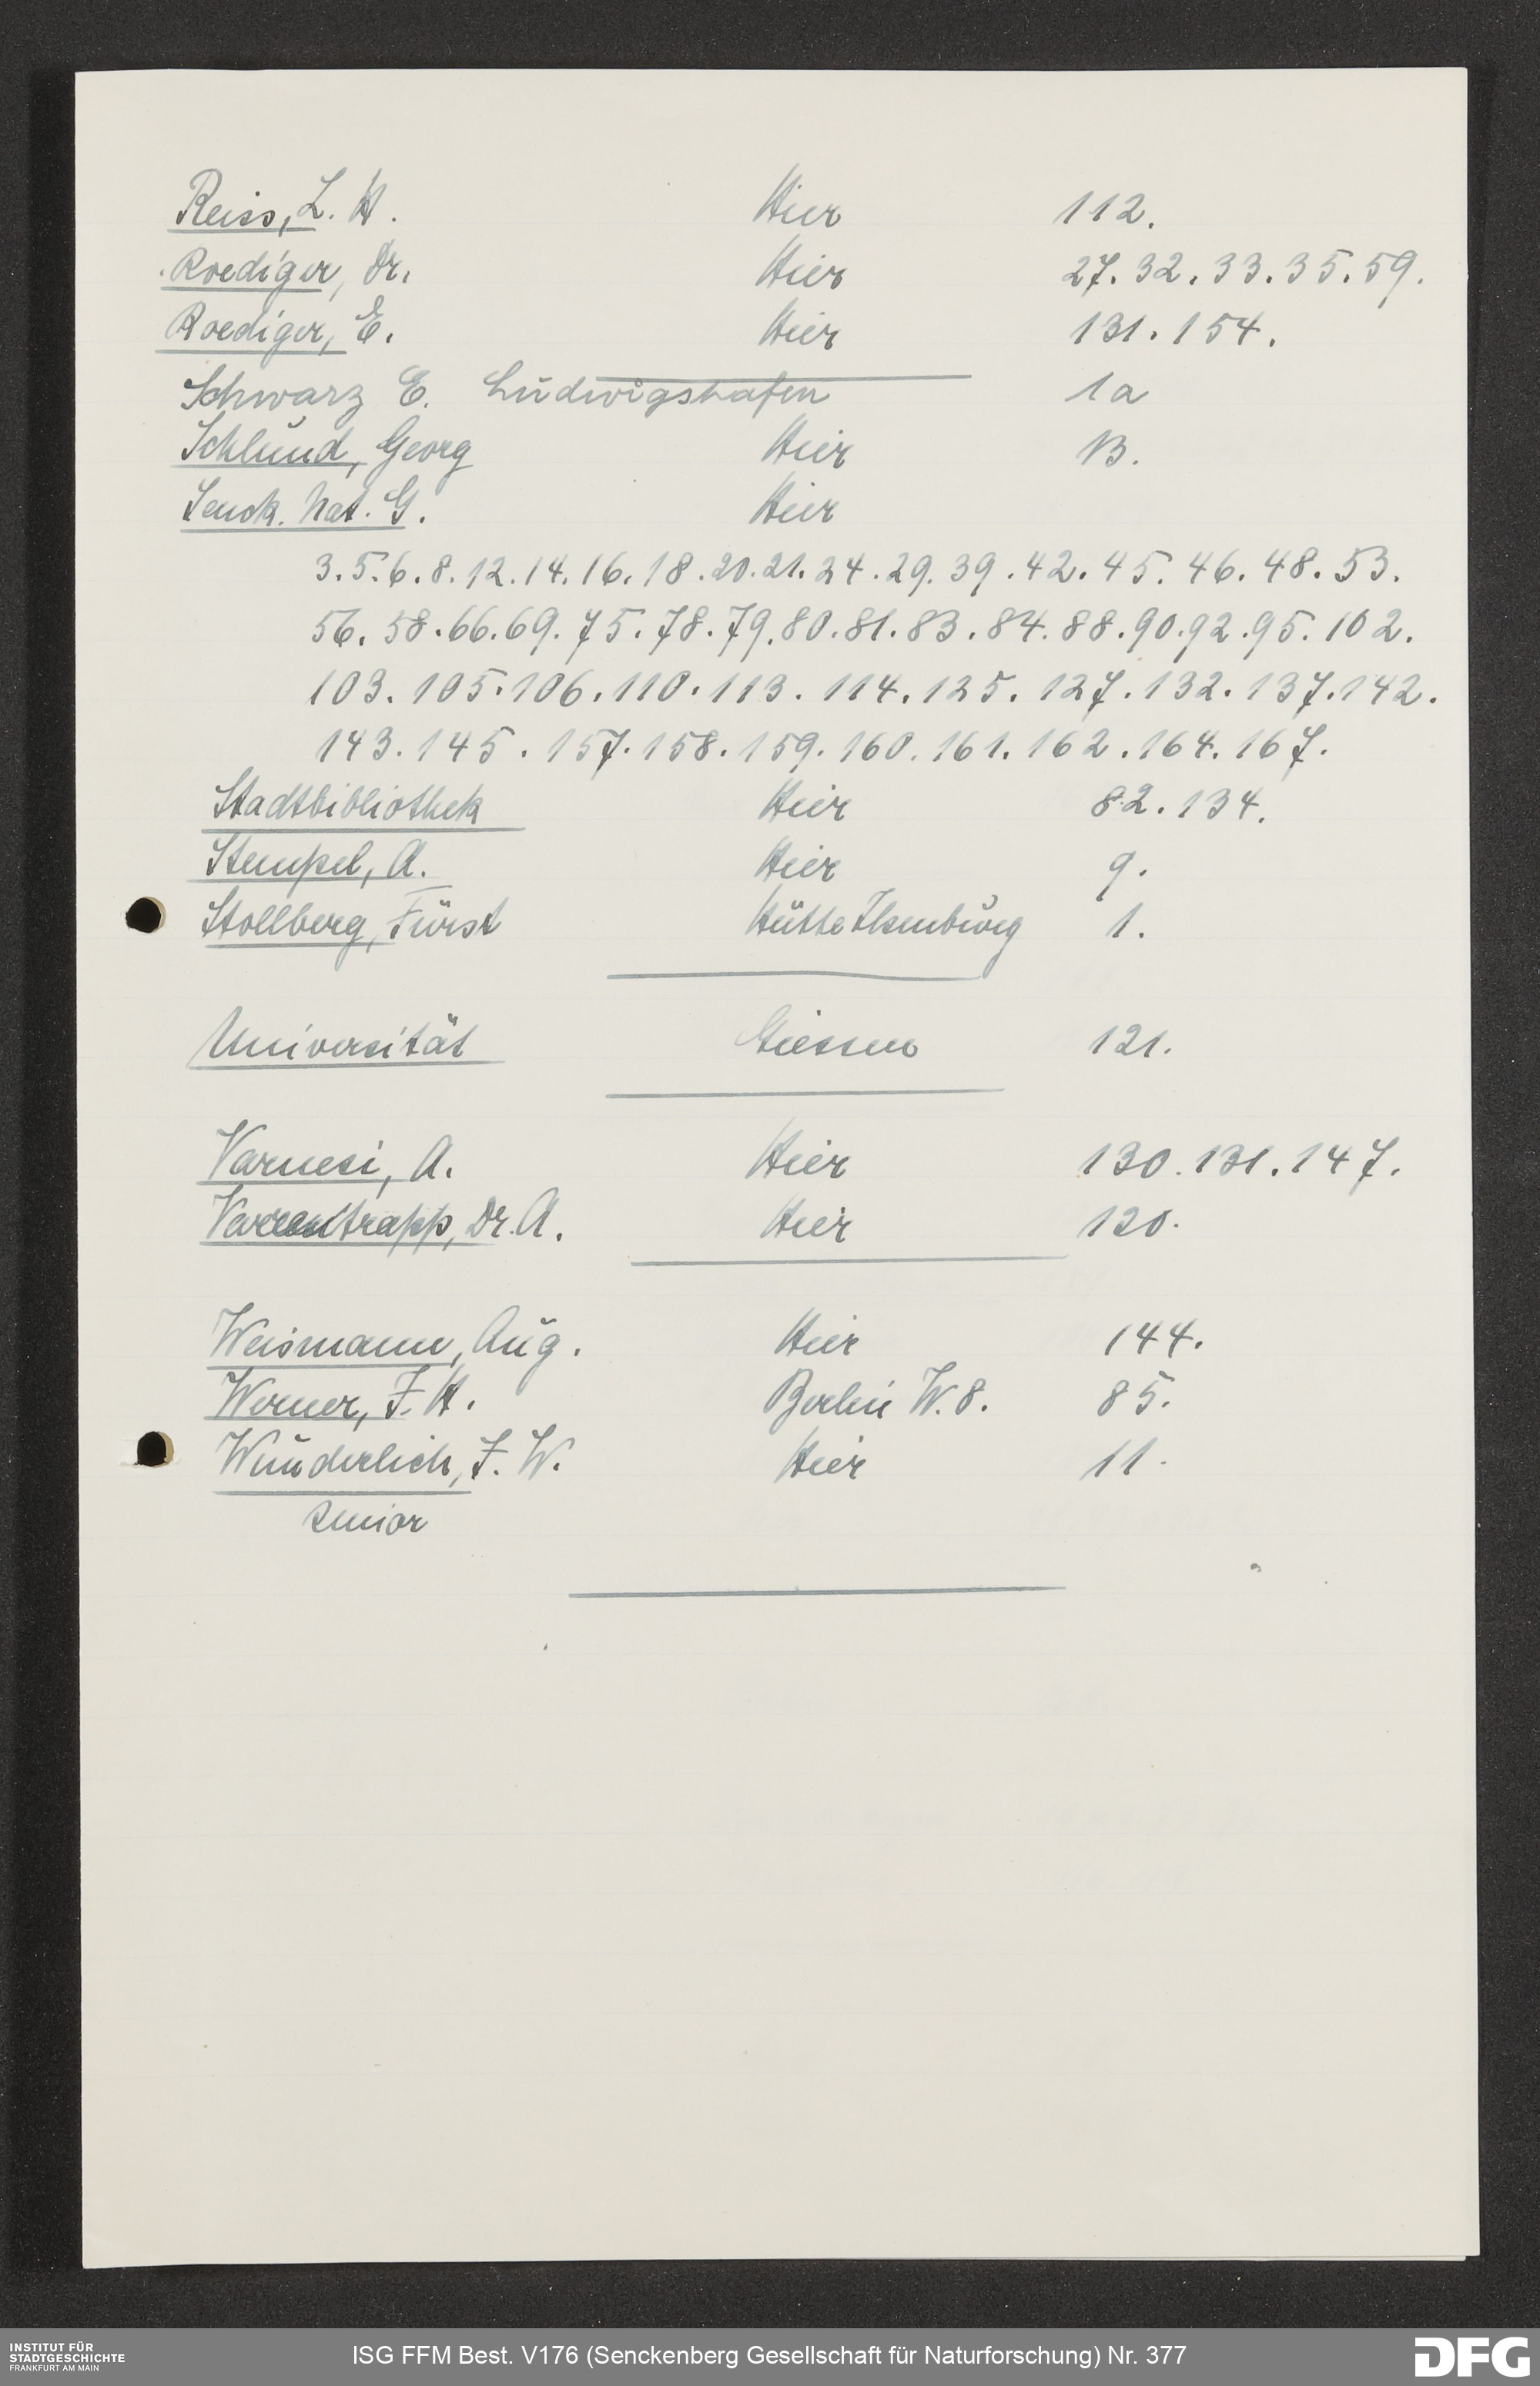 Reiss, L. H. Hier 112.
Roediger, Dr. Hier 27. 32. 33. 35. 59.
Roediger, E. Hier 131. 154.
Schwarz E. Ludwigshafen 1a
Schlund, Georg Hier 13.
Senck. Nat. G. Hier
3. 5. 6. 8. 12. 14. 16. 18. 20. 21. 24. 29. 39. 42. 45. 46. 48. 53.
56. 58. 66. 69. 75. 78. 79. 80. 81. 83. 84. 88. 90. 92. 95. 102.
103. 105. 106. 110. 113. 114. 125. 127. 132. 137. 142.
143. 145. 157. 158. 159. 160. 161. 162. 164. 167.
Stadtbibliothek Hier 82. 134.
Stempel, A. Hier 9.
Stollberg, Fürst Hütte Ilsenburg 1.
Universität Giessen 121.
Varnesi, A. Hier 130. 131. 147.
Varrentrapp, Dr. A. Hier 120.
Weismann, Aug. Hier 144.
Werner, F. H. Berlin W. 8. 85.
Wunderlich, F. W. Hier 11.
senior
INSTITUT FÜR
STADTGESCHICHTE
FRANKFURT AM MAIN
ISG FFM Best. V176 (Senckenberg Gesellschaft für Naturforschung) Nr. 377
DFG